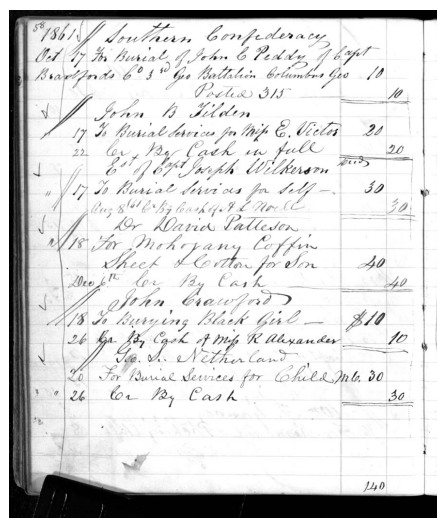 58
1861 Southern Confederacy
Oct 17 For Burial of John C Peddy of Capt
Brawfords Co 3rd Geo Battalion Columbus Geo 10
Posted 315 10
John B Tilden
17 To Burial Services for Miss E. Victor 20
22 Cr By Cash in full 20
Est of Capt Joseph Wilkerson
" 17 To Burial Services for Self — 30
Aug 8th 61 Cr By Cash of A L 30
Dr David Patteson
" 18 For Mohogany Coffin
Sheet & Cotton for Son 40
Dec 6th Cr By Cash 40
John Crawford
18 To Burying Black Girl — $10
26 Cr By Cash of Miss K Alexander 10
Geo L. Netherland
20 For Burial Services for Child Mc. 30
" 26 Cr By Cash 30
140